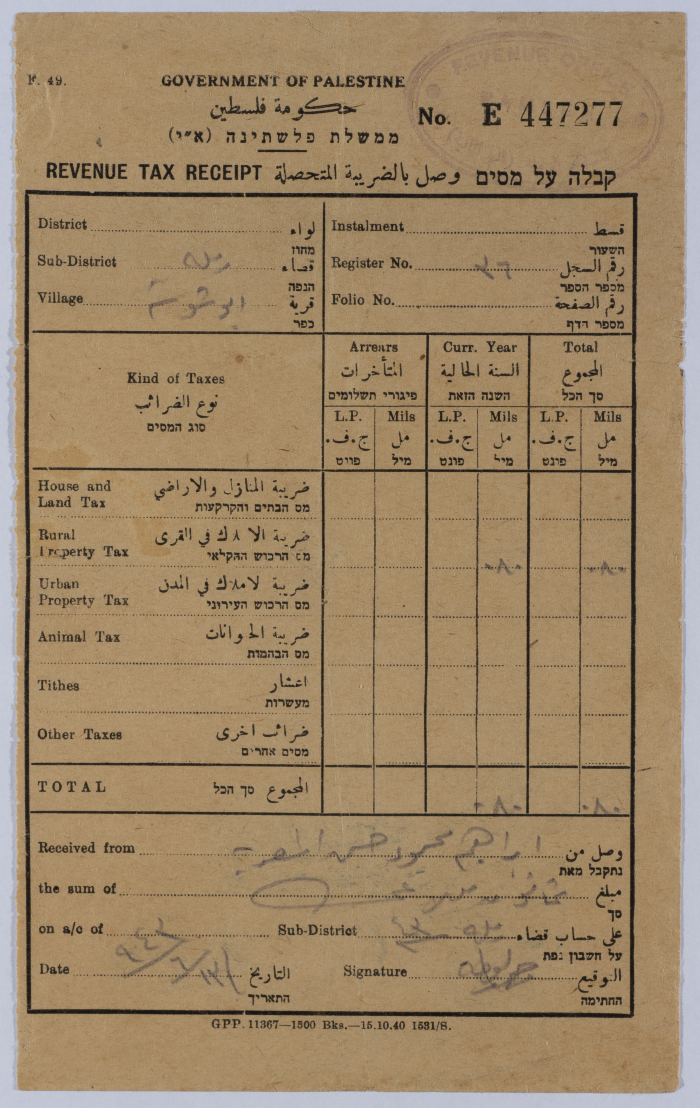 F. 49.
GOVERNMENT OF PALESTINE
حكومة فلسطين
ממשלת פלשתינה (א״י)
No. E 447277
REVENUE TAX RECEIPT وصل بالضريبة المتحصلة קבלה על מסים
District لواء
מחוז
Sub-District رمله قضاء
הנפה
Village ابو شوشة قرية
כפר
Instalment قسط
השעור
Register No. ٢٦ رقم السجل
מספר הספר
Folio No. رقم الصفحة
מספר הדף
Kind of Taxes
نوع الضرائب
סוג המסים
Arrears Curr. Year Total
المتأخرات السنة الحالية المجموع
פיגורי תשלומים השנה הזאת סך הכל
L.P. Mils L.P. Mils L.P. Mils
ج.ف. مل ج.ف. مل ج.ف. مل
פונט מיל פונט מיל פונט מיל
House and ضريبة المنازل والاراضي
Land Tax מס הבתים והקרקעות
Rural ضريبة الاملاك في القرى
Property Tax מס הרכוש החקלאי ٠٨٠ ٠٨٠
Urban ضريبة لاملاك في المدن
Property Tax מס הרכוש העירוני
Animal Tax ضريبة الحيوانات
מס הבהמות
Tithes اعشار
מעשרות
Other Taxes ضرائب اخرى
מסים אחרים
TOTAL المجموع סך הכל ٠٨٠ ٠٨٠
Received from ابراهيم محمود حسن وصل من
נתקבל מאת
the sum of ثمانون مبلغ
סך
on a/c of Sub-District رمله على حساب قضاء
על חשבון נפת
Date التاريخ Signature التوقيع
התאריך החתימה
GPP. 11367—1500 Bks.—15.10.40 1531/S.